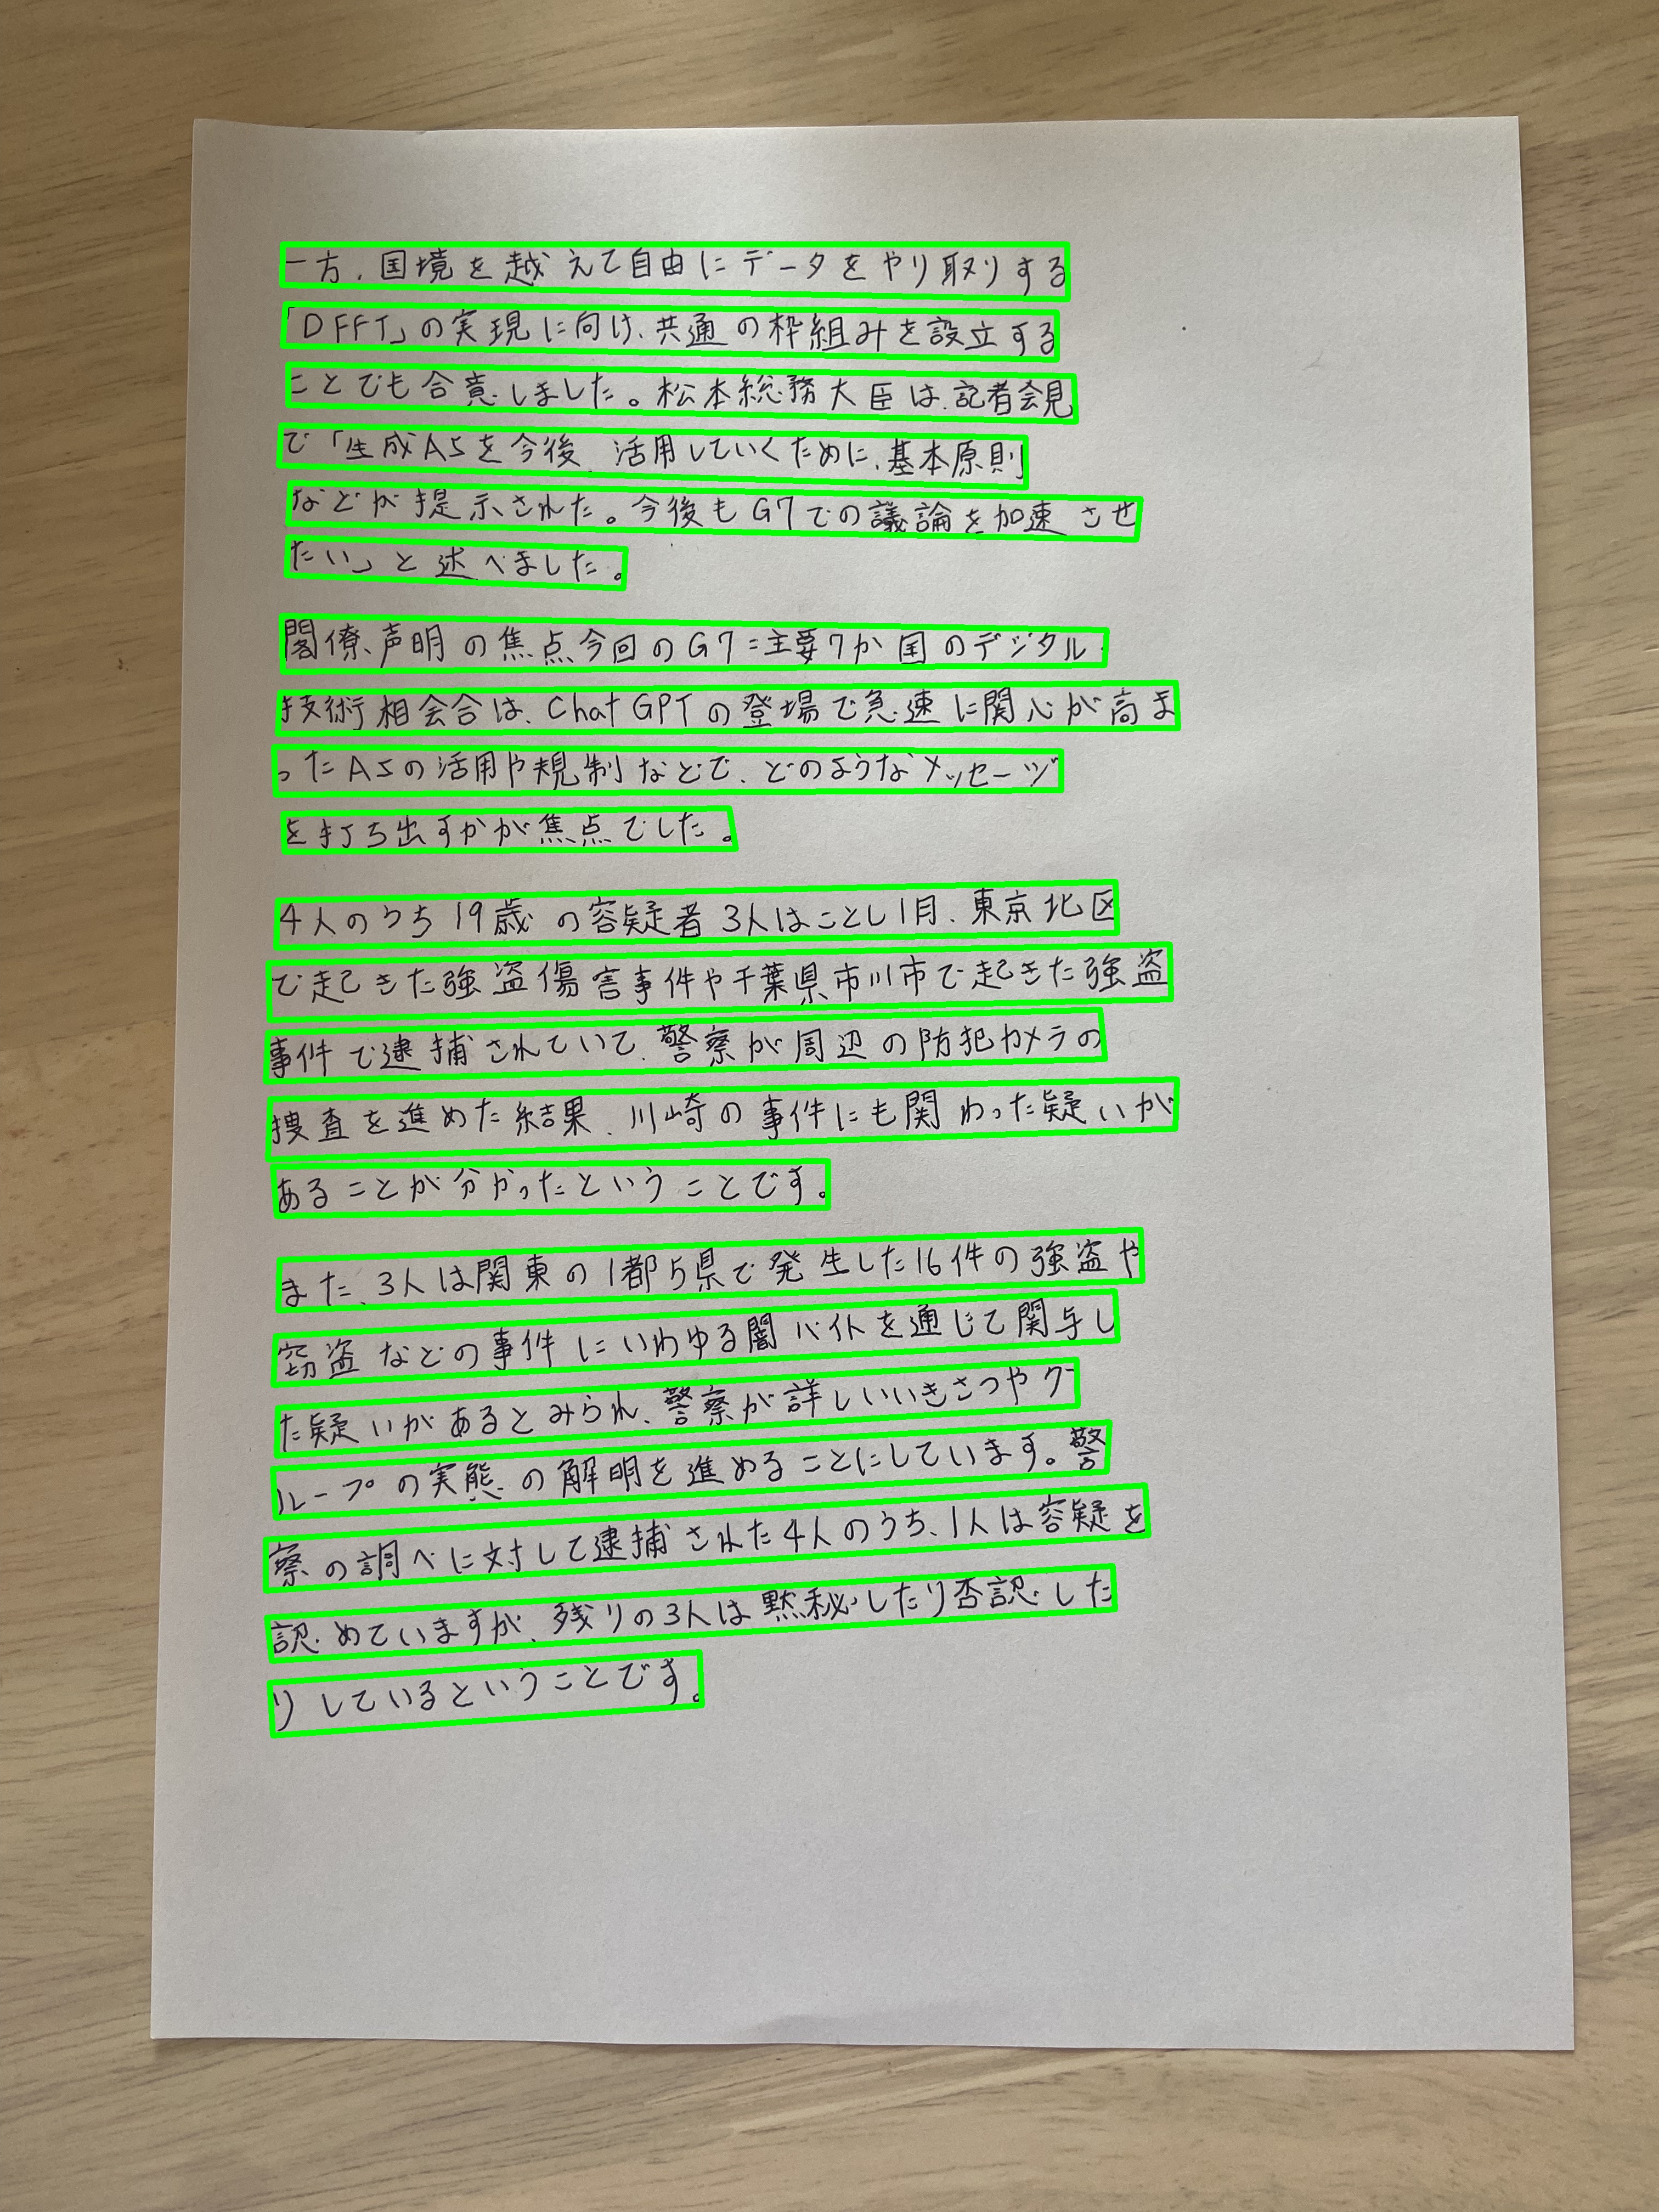 一方、国境を越えて自由にデータをやり取りする
「DFFT」の実現に向け、共通の枠組みを設立する
ことでも合意しました。松本総務大臣は、記者会見
で「生成AIを今後、活用していくために、基本原則
などが提示された。今後もG7での議論を加速させ
たい」と述べました。
閣僚声明の焦点今回のG7=主要7か国のデジタル・
技術相会合は、ChatGPTの登場で急速に関心が高ま
ったAIの活用や規制などで、どのようなメッセージ
を打ち出すかが焦点でした。
4人のうち19歳の容疑者3人はことし1月、東京北区
で起きた強盗傷害事件や千葉県市川市で起きた強盗
事件で逮捕されていて、警察が周辺の防犯カメラの
捜査を進めた結果、川崎の事件にも関わった疑いが
あることが分かったということです。
また、3人は関東の1都5県で発生した16件の強盗や
窃盗などの事件にいわゆる闇バイトを通じて関与し
た疑いがあるとみられ、警察が詳しいいきさつやグ
ループの実態の解明を進めることにしています。警
察の調べに対して逮捕された4人のうち、1人は容疑を
認めていますが、残りの3人は黙秘したり否認した
りしているということです。